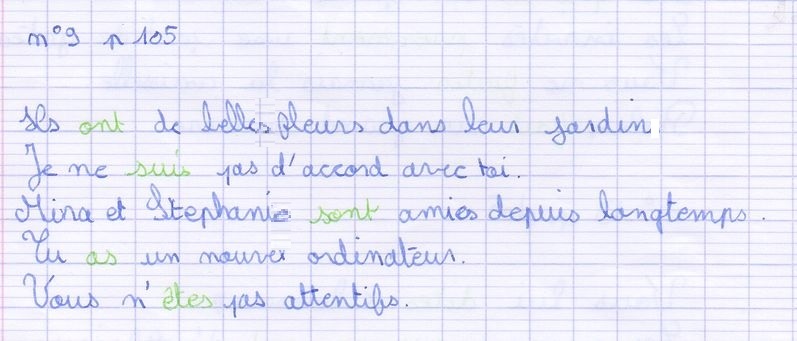 n°9 p 105
Ils ont de belles fleurs dans leur jardin.
Je ne suis pas d'accord avec toi.
Mina et Stephanie sont amies depuis longtemps.
Tu as un nouvex ordinateur.
Vous n'êtes pas attentifs.